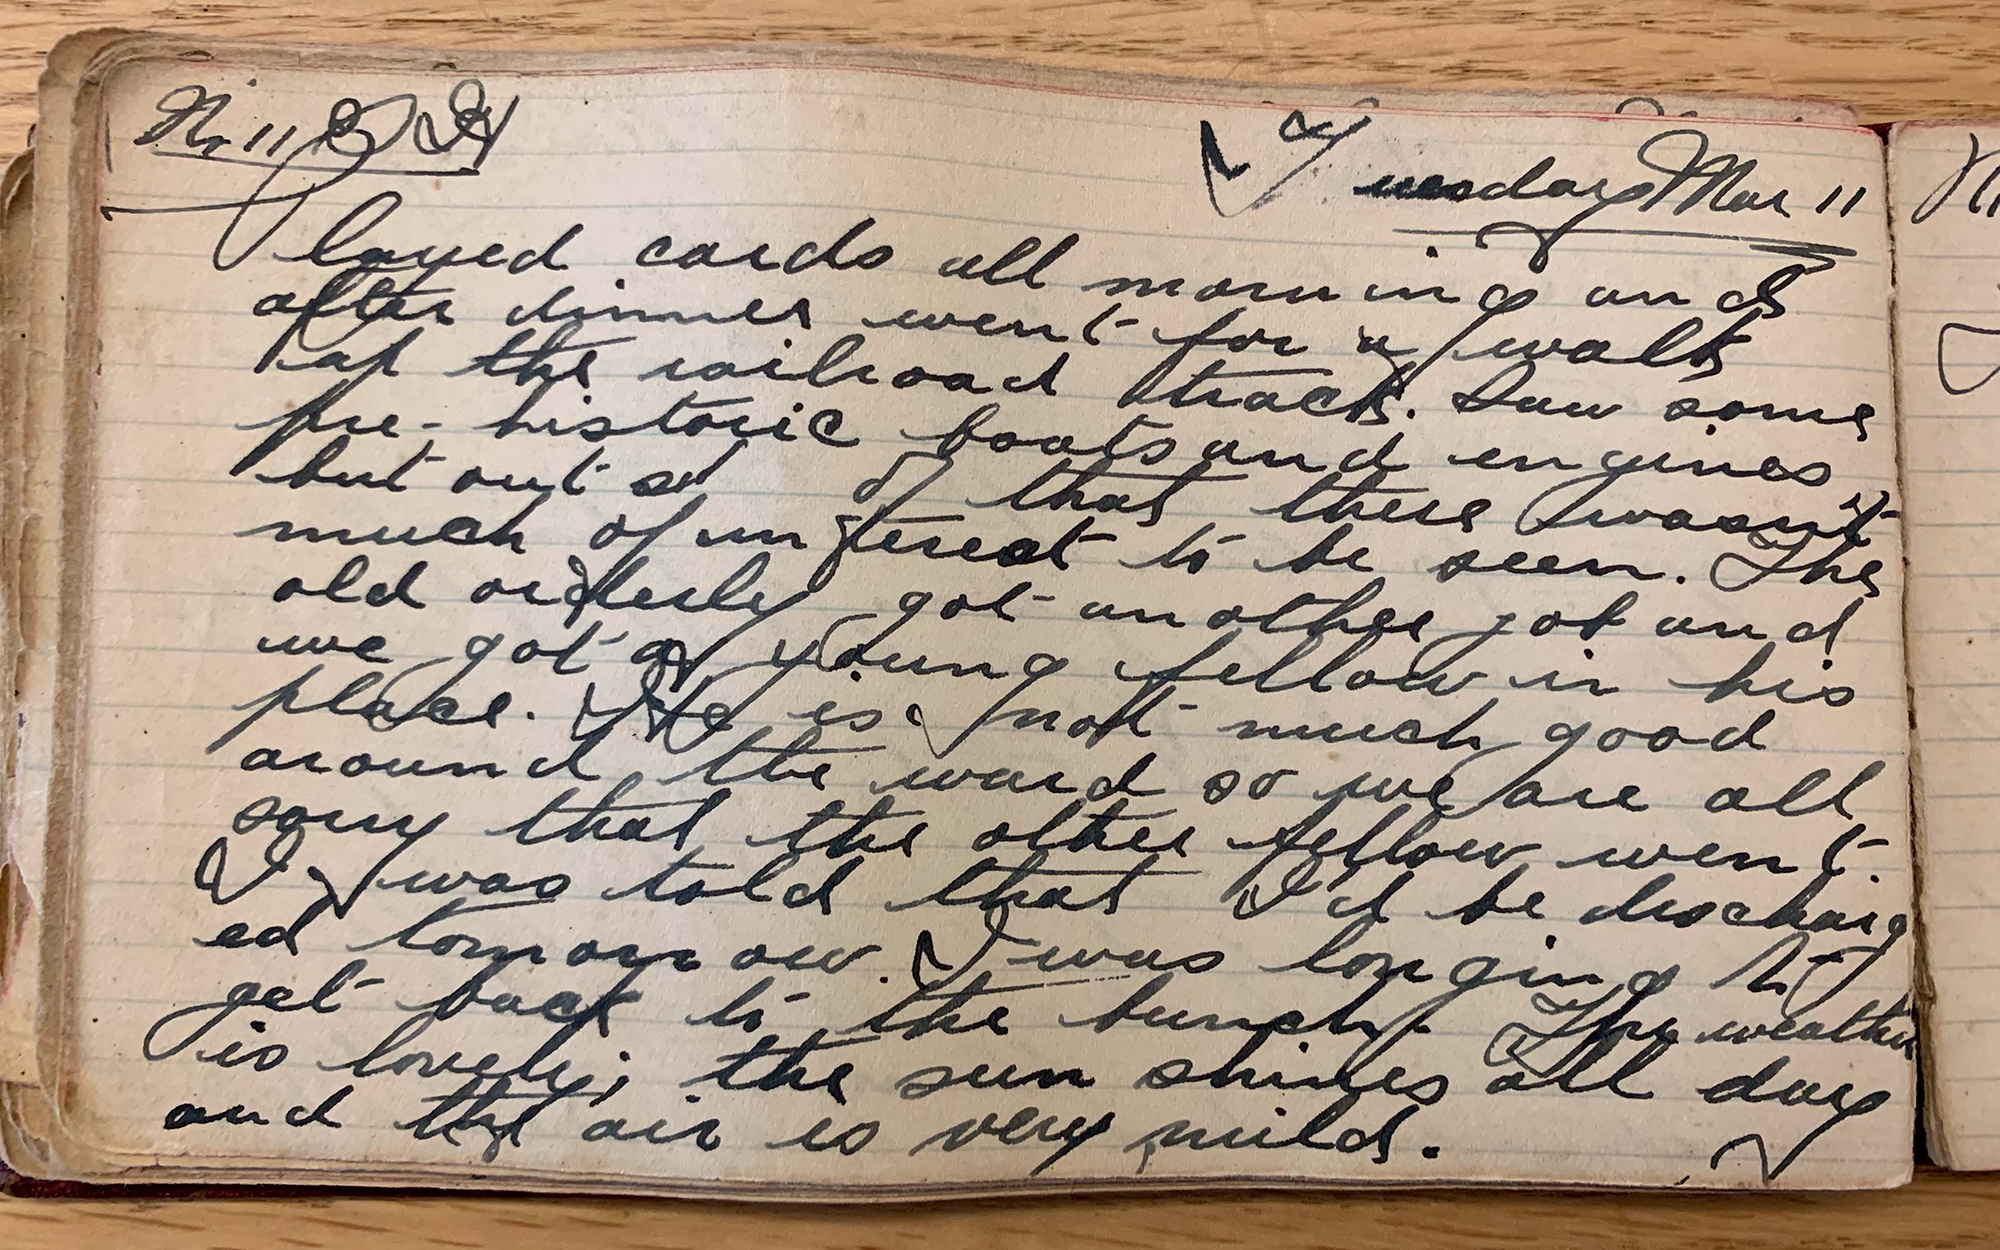 Nr 11
Tuesday Mar 11
Played cards all morning and
after dinner went for a walk
up the railroad track. Saw some
pre-historic boats and engines
but outs of that there wasn't
much of interest to be seen. The
old orderly got another job and
we got a young fellow in his
place. He is not much good
around the ward so we are all
sorry that the other fellow went.
I was told that I'd be discharg
ed tomorrow. I was longing to
get back to the bunch. The weather
is lovely; the sun shines all day
and the air is very mild.